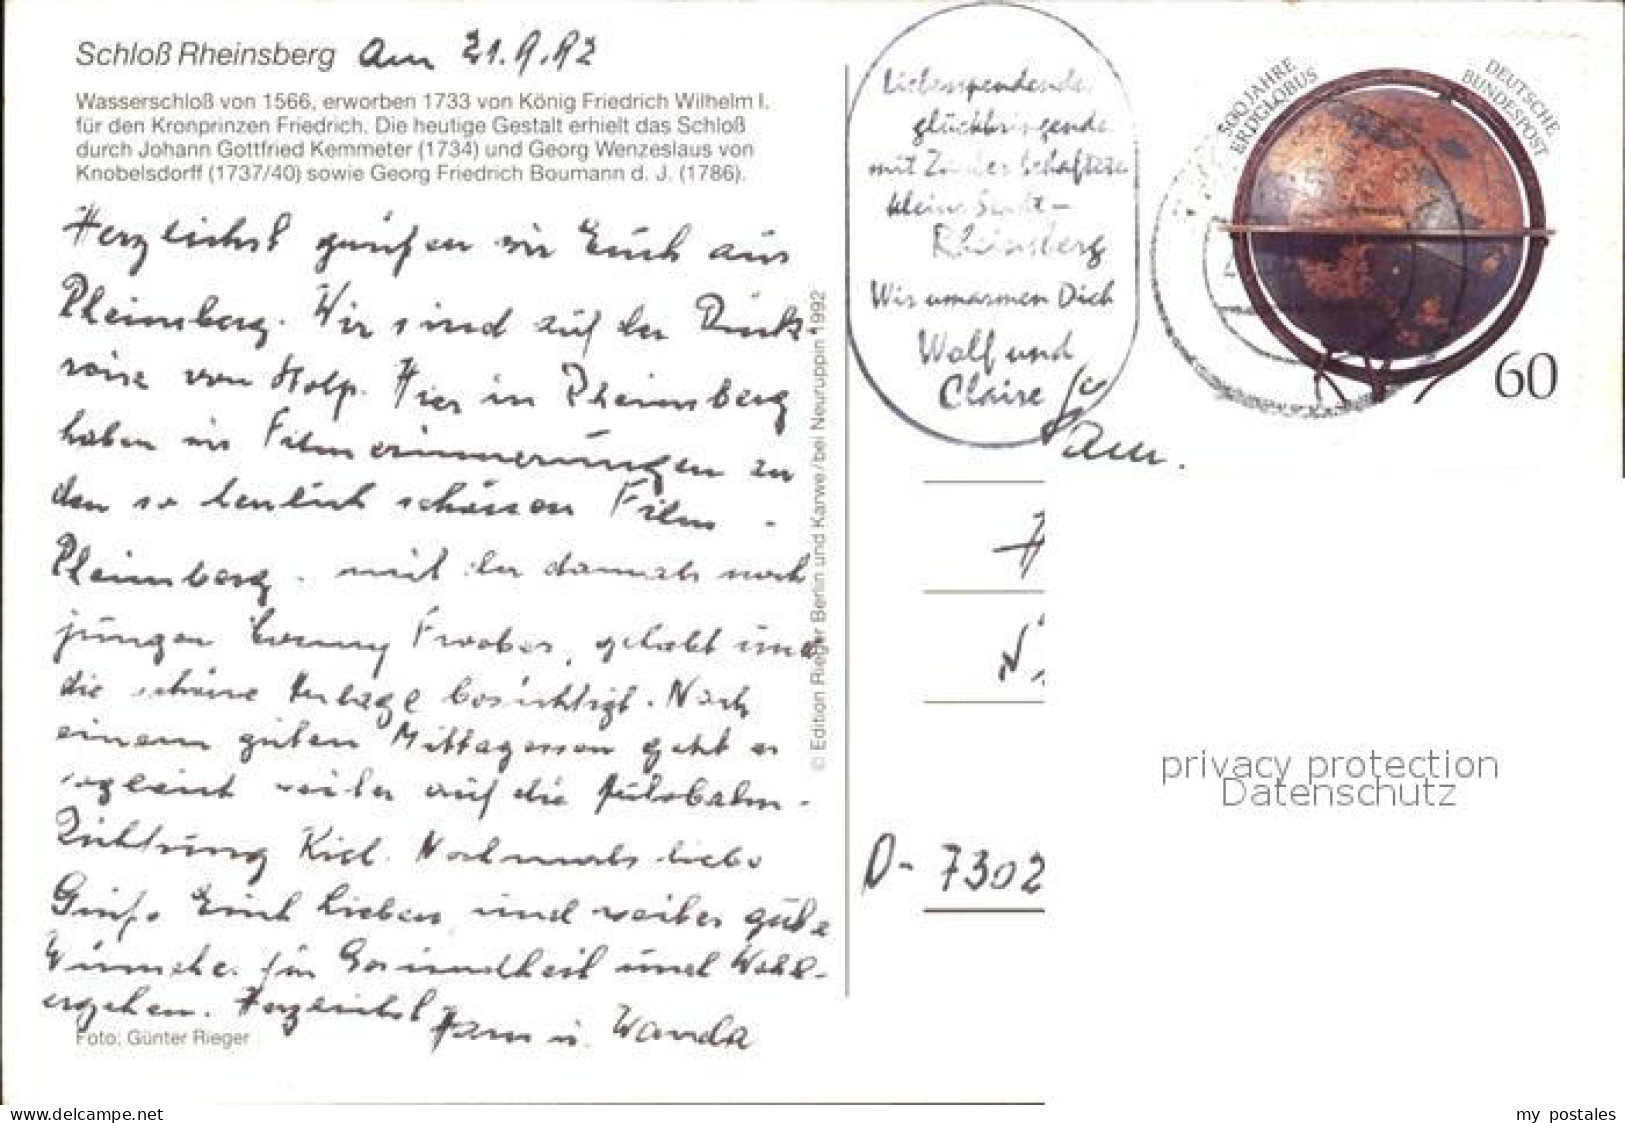 Schloß Rheinsberg am 21.9.92
Wasserschloß von 1566, erworben 1733 von König Friedrich Wilhelm I.
für den Kronprinzen Friedrich. Die heutige Gestalt erhielt das Schloß
durch Johann Gottfried Kemmeter (1734) und Georg Wenzeslaus von
Knobelsdorff (1737/40) sowie Georg Friedrich Boumann d. J. (1786).
Herzlichst grüßen wir Euch aus
Rheinsberg. Wir sind auf der Rück-
reise von Stolp. Hier in Rheinsberg
haben wir Filmerinnerungen zu
den so schönen Film -
Rheinsberg - mit der damals noch
jungen Froebes, gelebt und
die schöne Anlage besichtigt. Nach
einem guten Mittagessen geht es
sogleich weiter auf die Autobahn -
Richtung Kiel. Nochmals liebe
Grüße Euch Lieben und weiter gute
Wünsche für Gesundheit und Wohl-
ergehen. Herzlichst Hans u. Wanda
Foto: Günter Rieger
© Edition Rieger Berlin und Karwe/bei Neuruppin 1992
Liebespendende
glückbringende
mit Zauber behaftete
kleine Stadt -
Rheinsberg
Wir umarmen Dich
Wolf und
Claire
500 JAHRE
ERDGLOBUS
DEUTSCHE
BUNDESPOST
60
Fam.
D- 7302
privacy protection
Datenschutz
delcampe.net
my postales